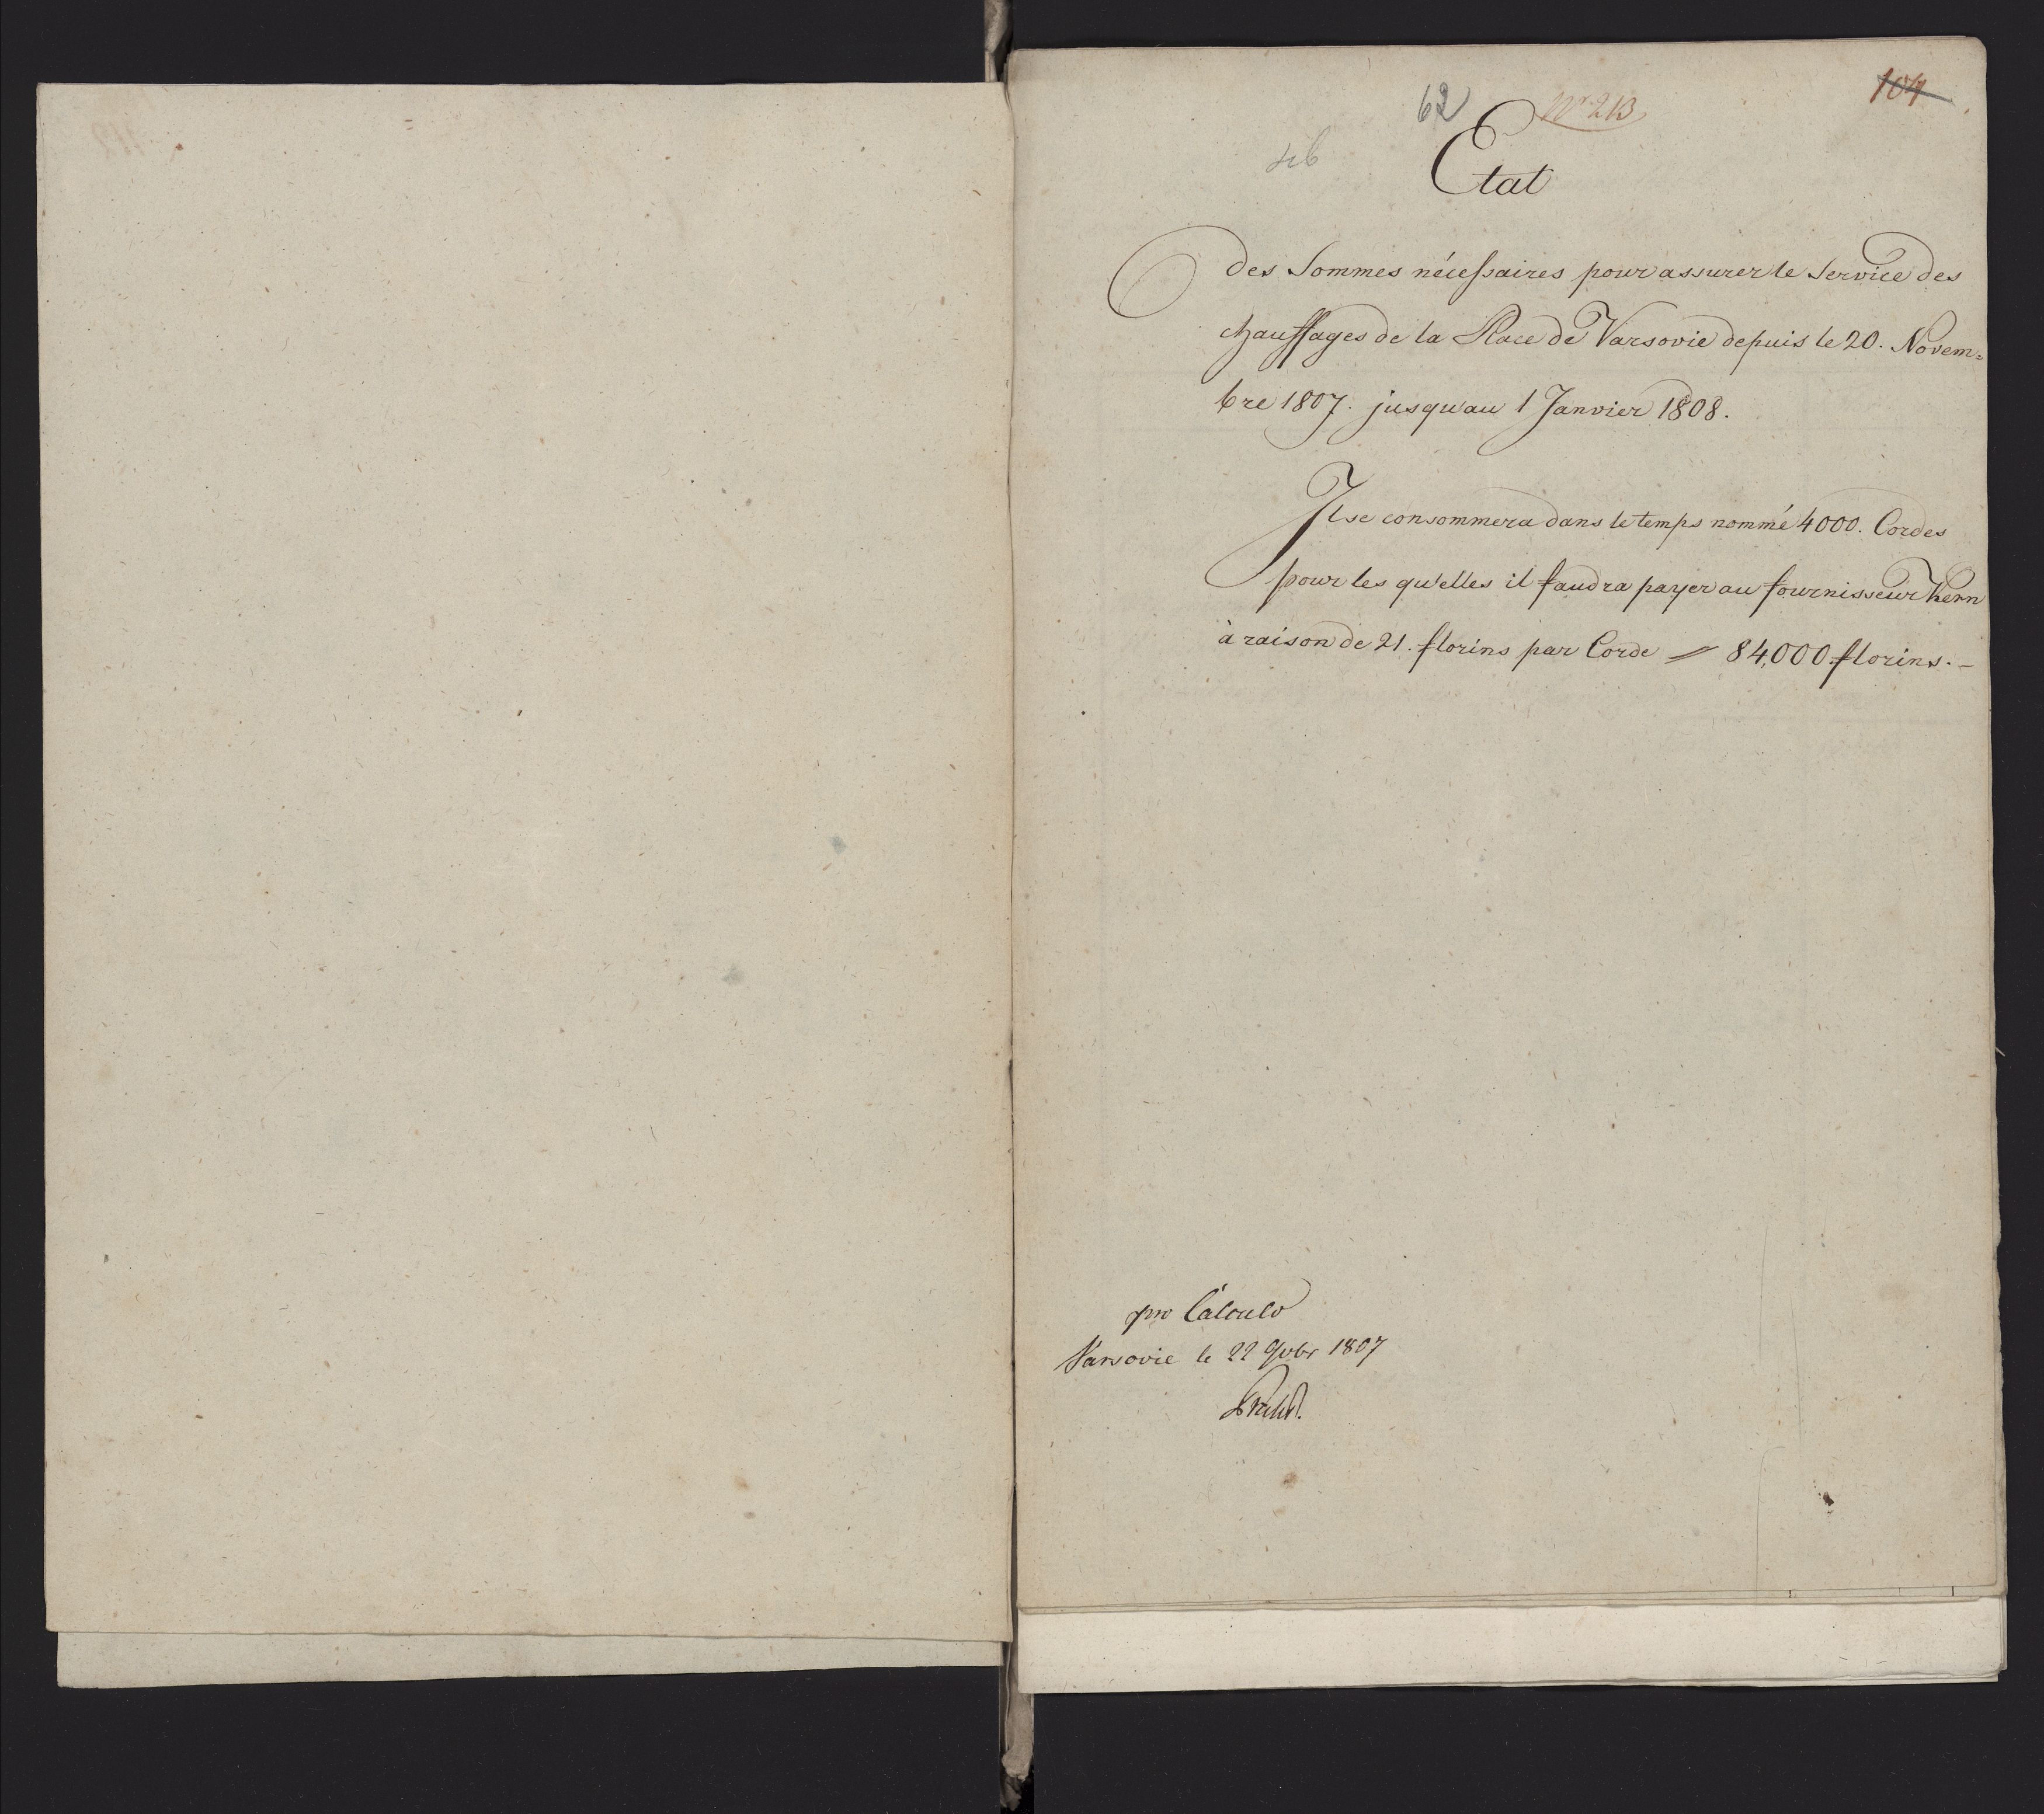 104
62 Nr 213
46
Etat
des Sommes nécessaires pour assurer le Service des
chauffages de la Place de Varsovie depuis le 20. Novem=
bre 1807. jusqu'au 1 Janvier 1808.
Il se consommera dans le temps nommé 4000. Cordes
pour les qu'elles il faudra payer au fournisseur Kern
à raison de 21. florins par Corde = 84,000 florins. -
pro Calculo
Varsovie le 22 9vbr 1807